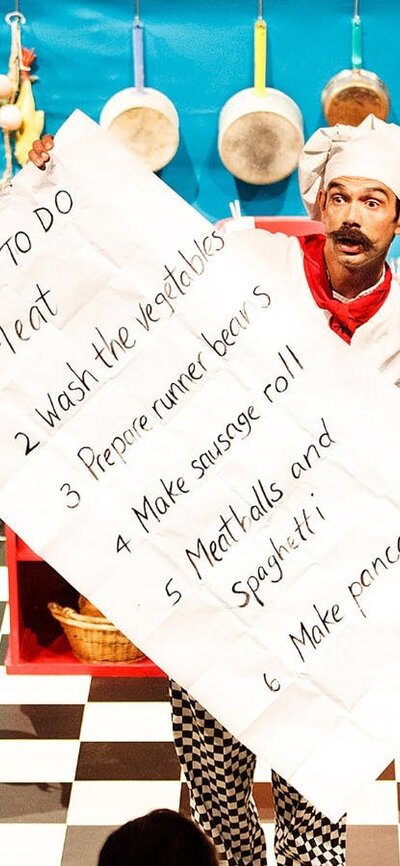 TO DO
2 Wash the vegetables
3 Prepare runner beans
4 Make sausage roll
5 Meatballs and
Spaghetti
6 Make